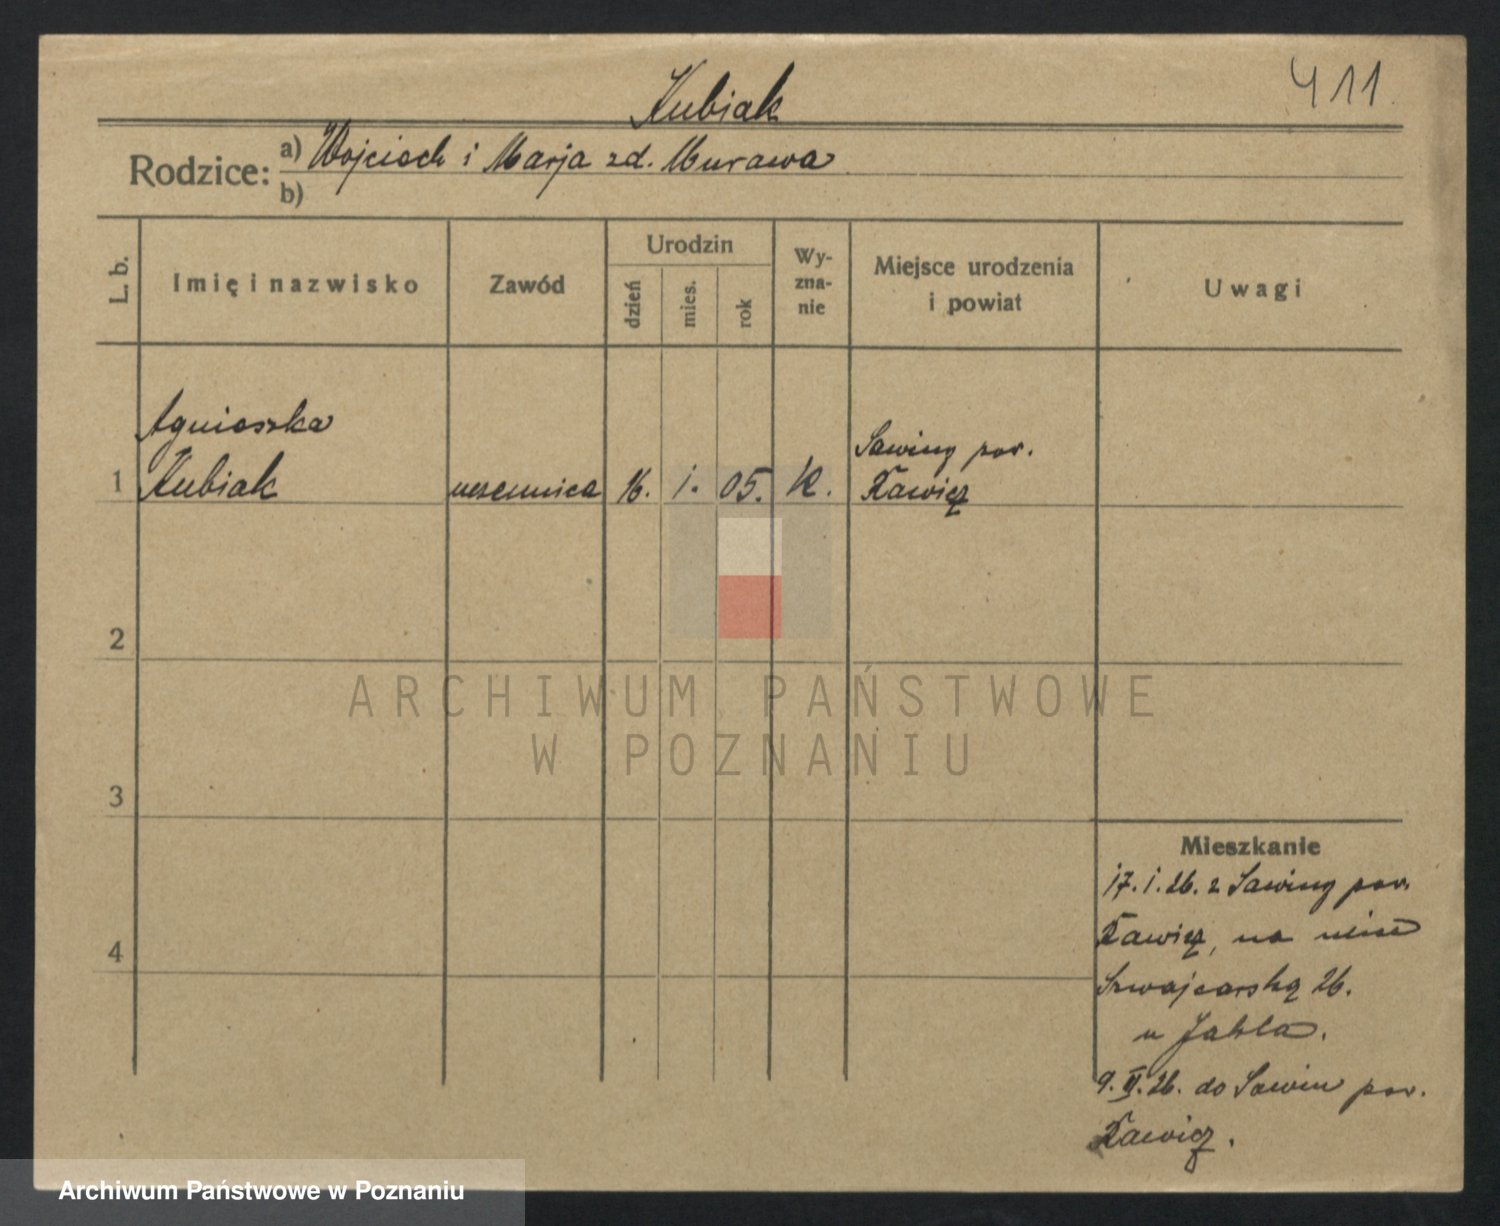 Kubiak
411
Rodzice: a) Wojciech i Marja zd. Murawa
b)
L. b.
Imię i nazwisko
Zawód
Urodzin
dzień
mies.
rok
Wy-
zna-
nie
Miejsce urodzenia
i powiat
Uwagi
Agnieszka
1 Kubiak
uczennica
16. 1. 05. K.
Sowiny pow.
Rawicz
2
3
4
Mieszkanie
17.1.26. z Sowiny pow.
Rawicz, na
26.
u
9.II.26. do Sowin pow.
Rawicz.
ARCHIWUM PAŃSTWOWE
W POZNANIU
Archiwum Państwowe w Poznaniu